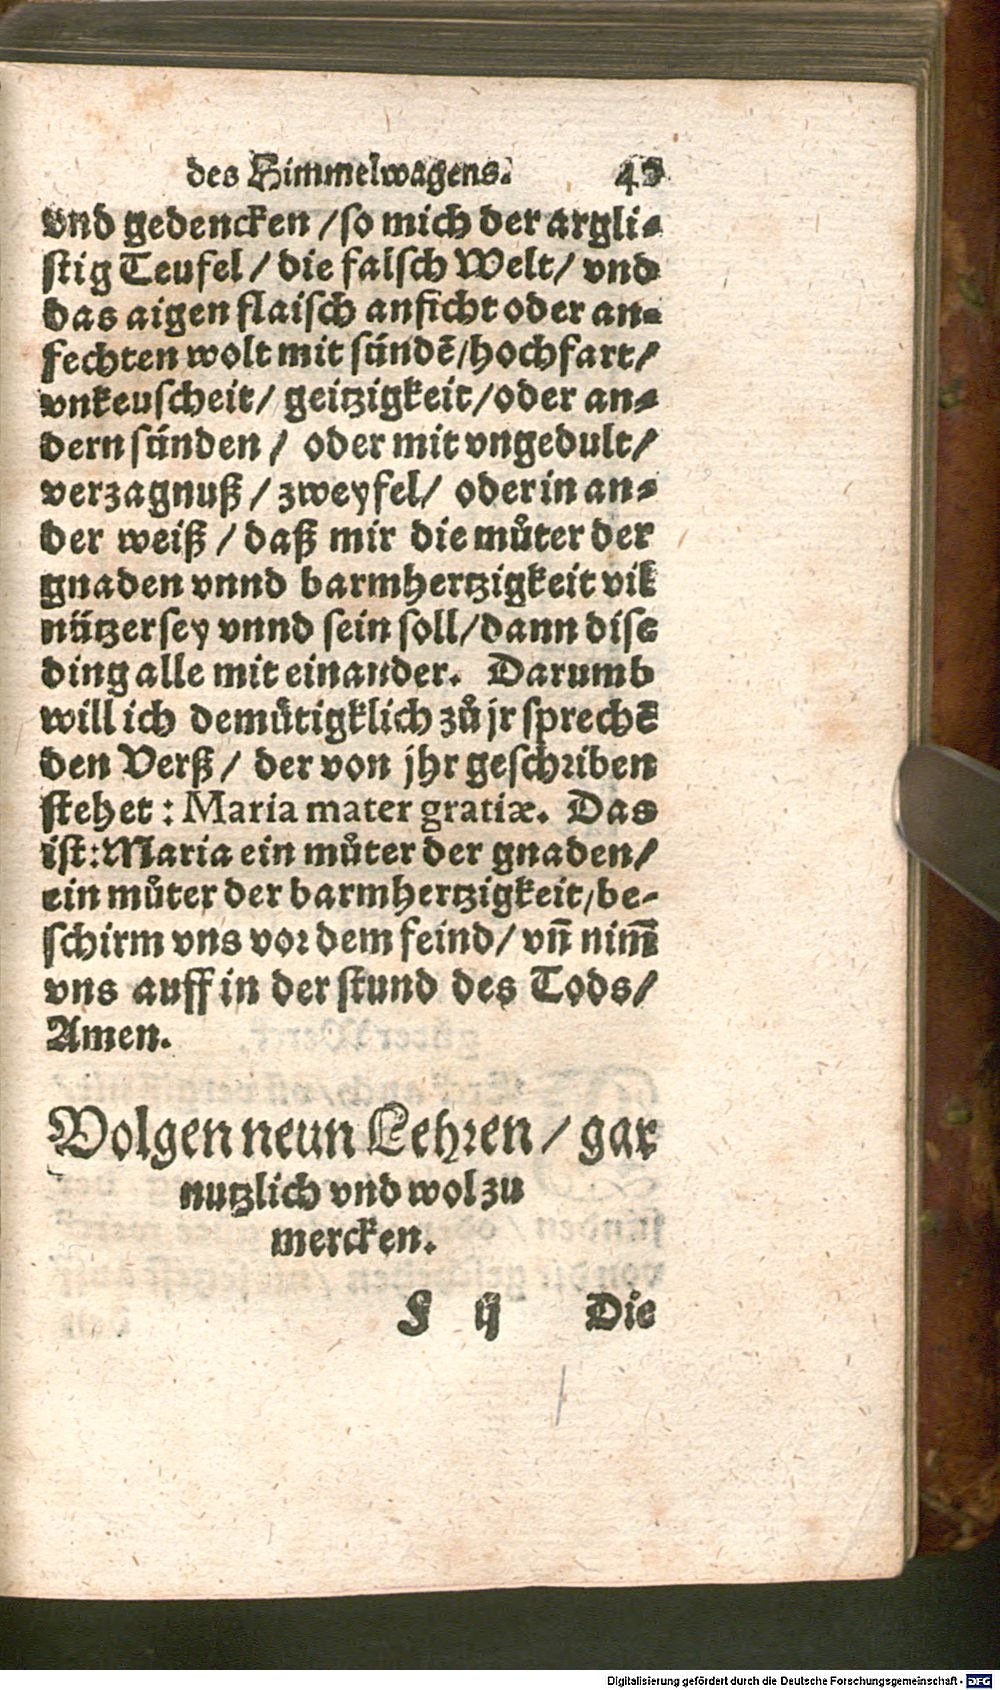 des Himmelwagens. 43
vnd gedencken / so mich der argli⸗
stig Teufel / die falsch Welt / vnd
das aigen flaisch anficht oder an⸗
fechten wolt mit sündē / hochfart /
vnkeuscheit / geitzigkeit / oder an⸗
dern sünden / oder mit vngedult /
verzagnuß / zweyfel / oder in an⸗
der weiß / daß mir die můter der
gnaden vnnd barmhertzigkeit vil
nützer sey vnnd sein soll / dann dise
ding alle mit einander. Darumb
will ich demütigklich zů jr sprechē
den Verß / der von jhr geschriben
stehet : Maria mater gratiæ. Das
ist : Maria ein můter der gnaden /
ein můter der barmhertzigkeit / be-
schirm vns vor dem feind / vñ nim̄
vns auff in der stund des Tods /
Amen.
Volgen neun Lehren / gar
nutzlich vnd wol zu
mercken.
F ij Die
Digitalisierung gefördert durch die Deutsche Forschungsgemeinschaft - DFG